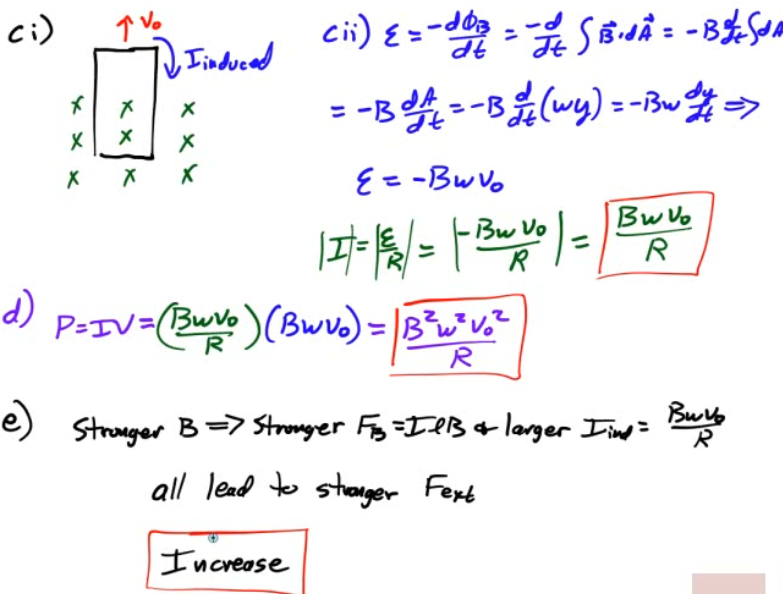 ci) ↑ v₀
I induced
x x x
x x x
x x x
cii) ε = -dΦ_B/dt = -d/dt ∫ B⃗·dA⃗ = -B d/dt ∫dA
= -B dA/dt = -B d/dt (wy) = -Bw dy/dt ⇒
ε = -Bwv₀
|I| = |ε/R| = |-Bwv₀/R| = Bwv₀/R
d) P=IV=(Bwv₀/R)(Bwv₀) = B²w²v₀²/R
e) Stronger B => Stronger F_B = IℓB & larger I_ind = Bwv₀/R
all lead to stronger Fext
Increase